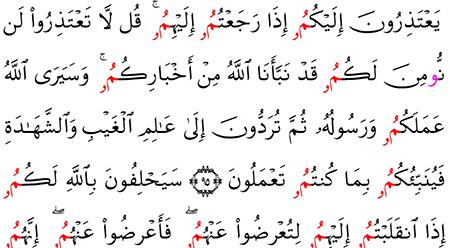 يَعۡتَذِرُونَ إِلَيۡكُمُۥ إِذَا رَجَعۡتُمُۥ إِلَيۡهِمُۥۚ قُل لَّا تَعۡتَذِرُواْ لَن
نُّومِنَ لَكُمُۥ قَدۡ نَبَّأَنَا ٱللَّهُ مِنۡ أَخۡبَارِكُمُۥۚ وَسَيَرَى ٱللَّهُ
عَمَلَكُمُۥ وَرَسُولُهُۥ ثُمَّ تُرَدُّونَ إِلَىٰ عَٰلِمِ ٱلۡغَيۡبِ وَٱلشَّهَٰدَةِ
فَيُنَبِّئُكُمُۥ بِمَا كُنتُمُۥ تَعۡمَلُونَ ۝٩٥ سَيَحۡلِفُونَ بِٱللَّهِ لَكُمُۥ
إِذَا ٱنقَلَبۡتُمُۥ إِلَيۡهِمُۥ لِتُعۡرِضُواْ عَنۡهُمُۥۖ فَأَعۡرِضُواْ عَنۡهُمُۥۖ إِنَّهُمُۥ